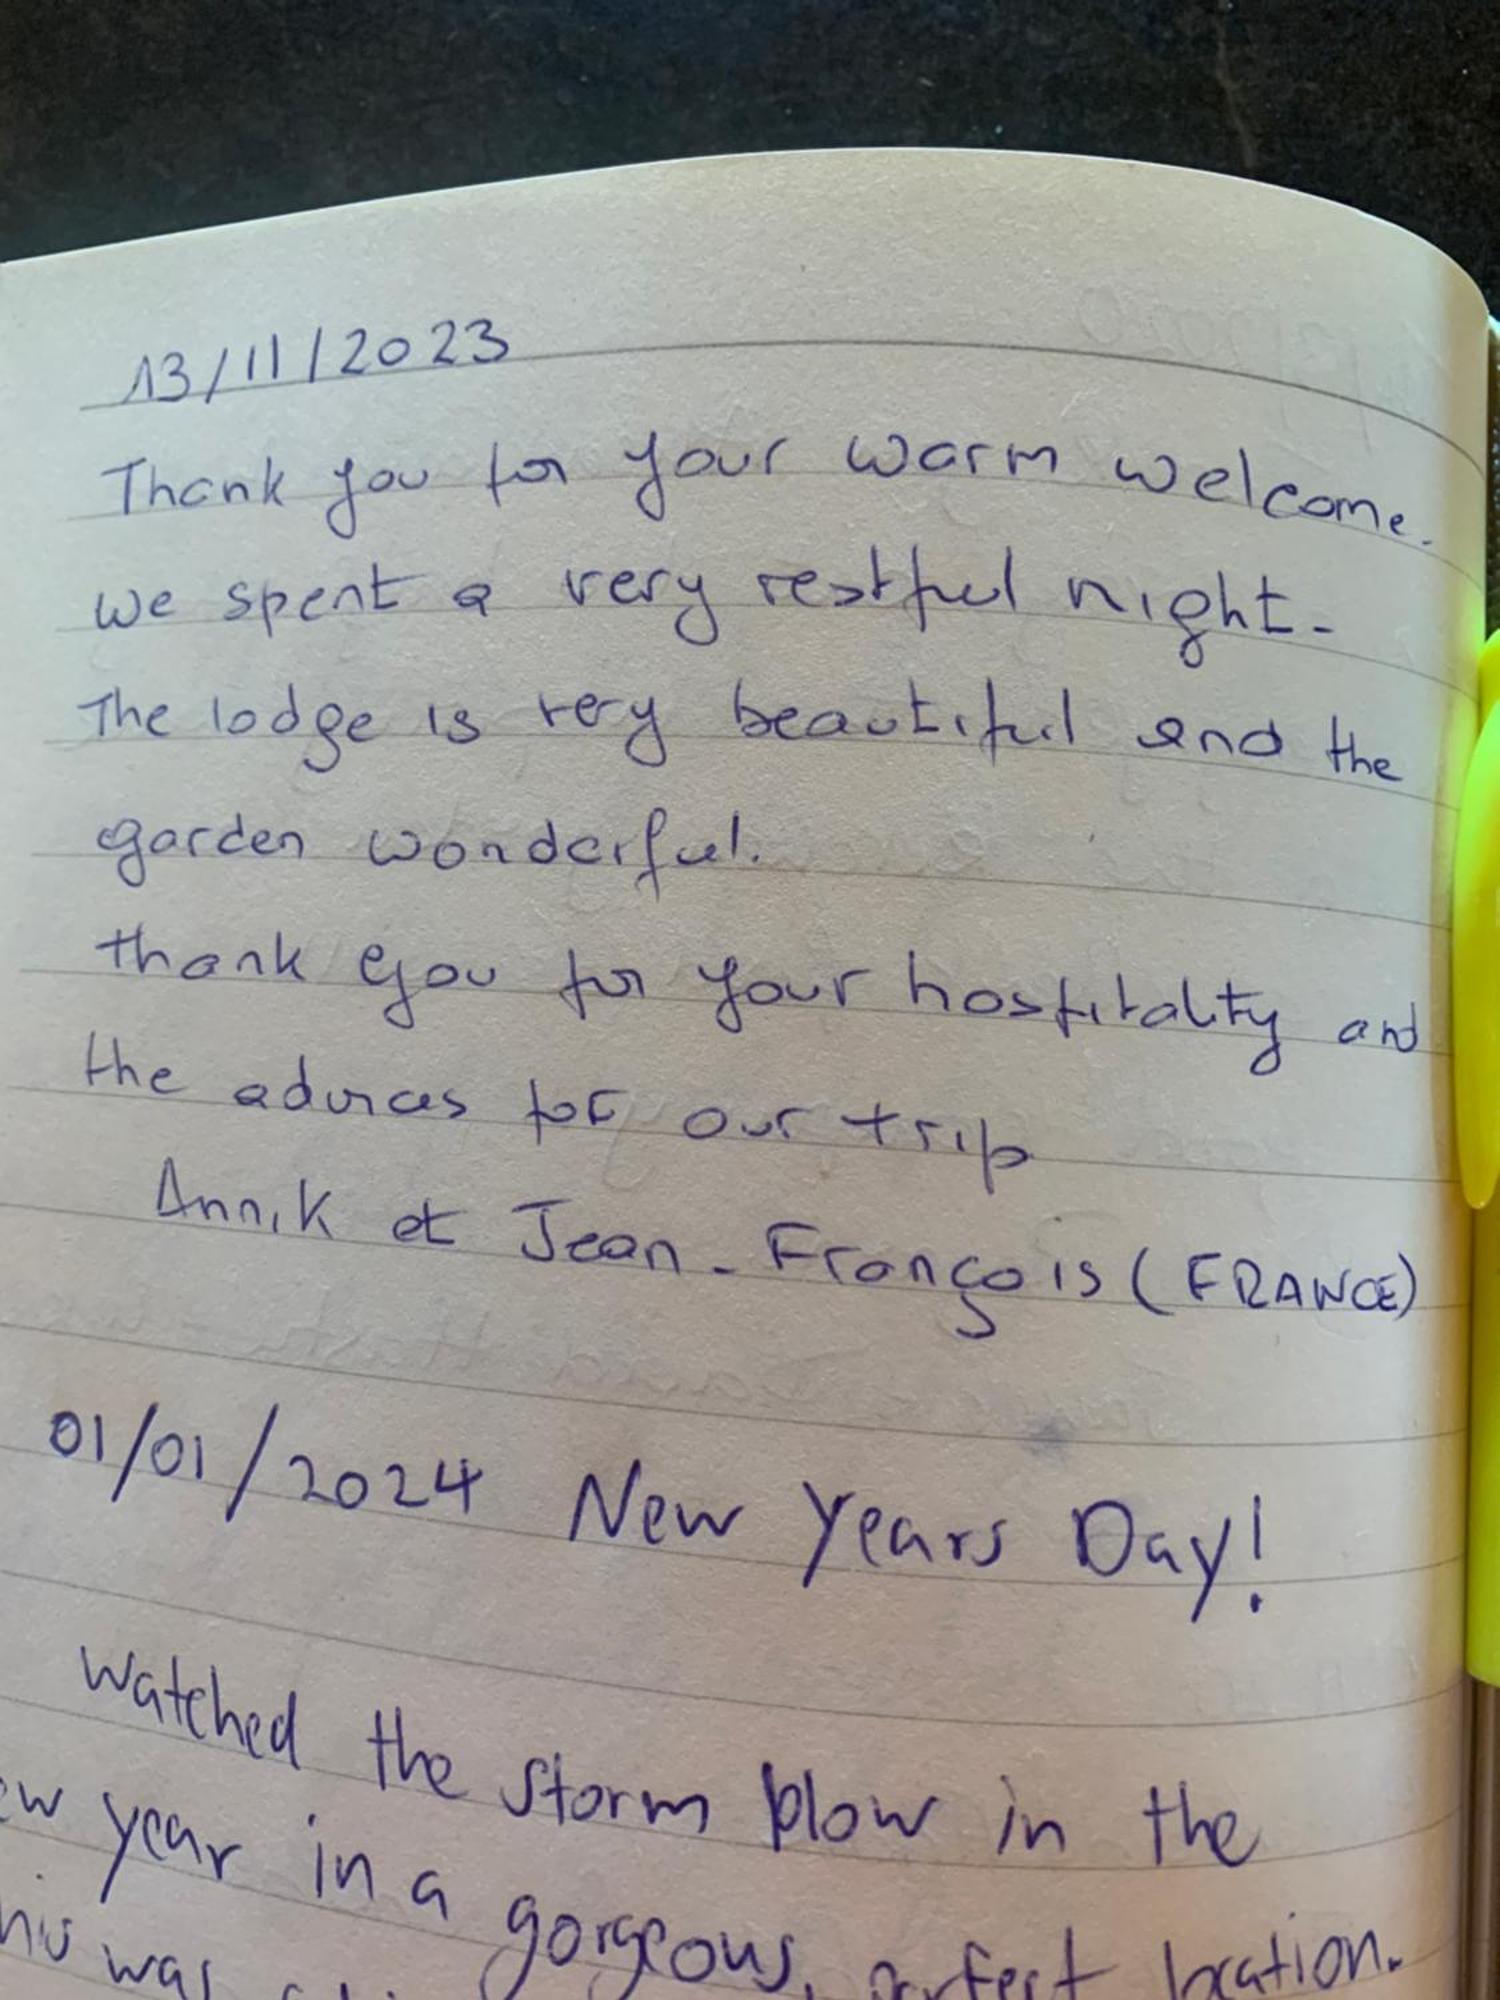 13/11/2023
Thank you for your warm welcome.
we spent a very restful night.
The lodge is very beautiful and the
garden wonderful.
thank you for your hospitality and
the advices for our trip
Annik et Jean-François (FRANCE)
01/01/2024 New Years Day!
Watched the storm blow in the
year in a gorgeous, perfect location.
was